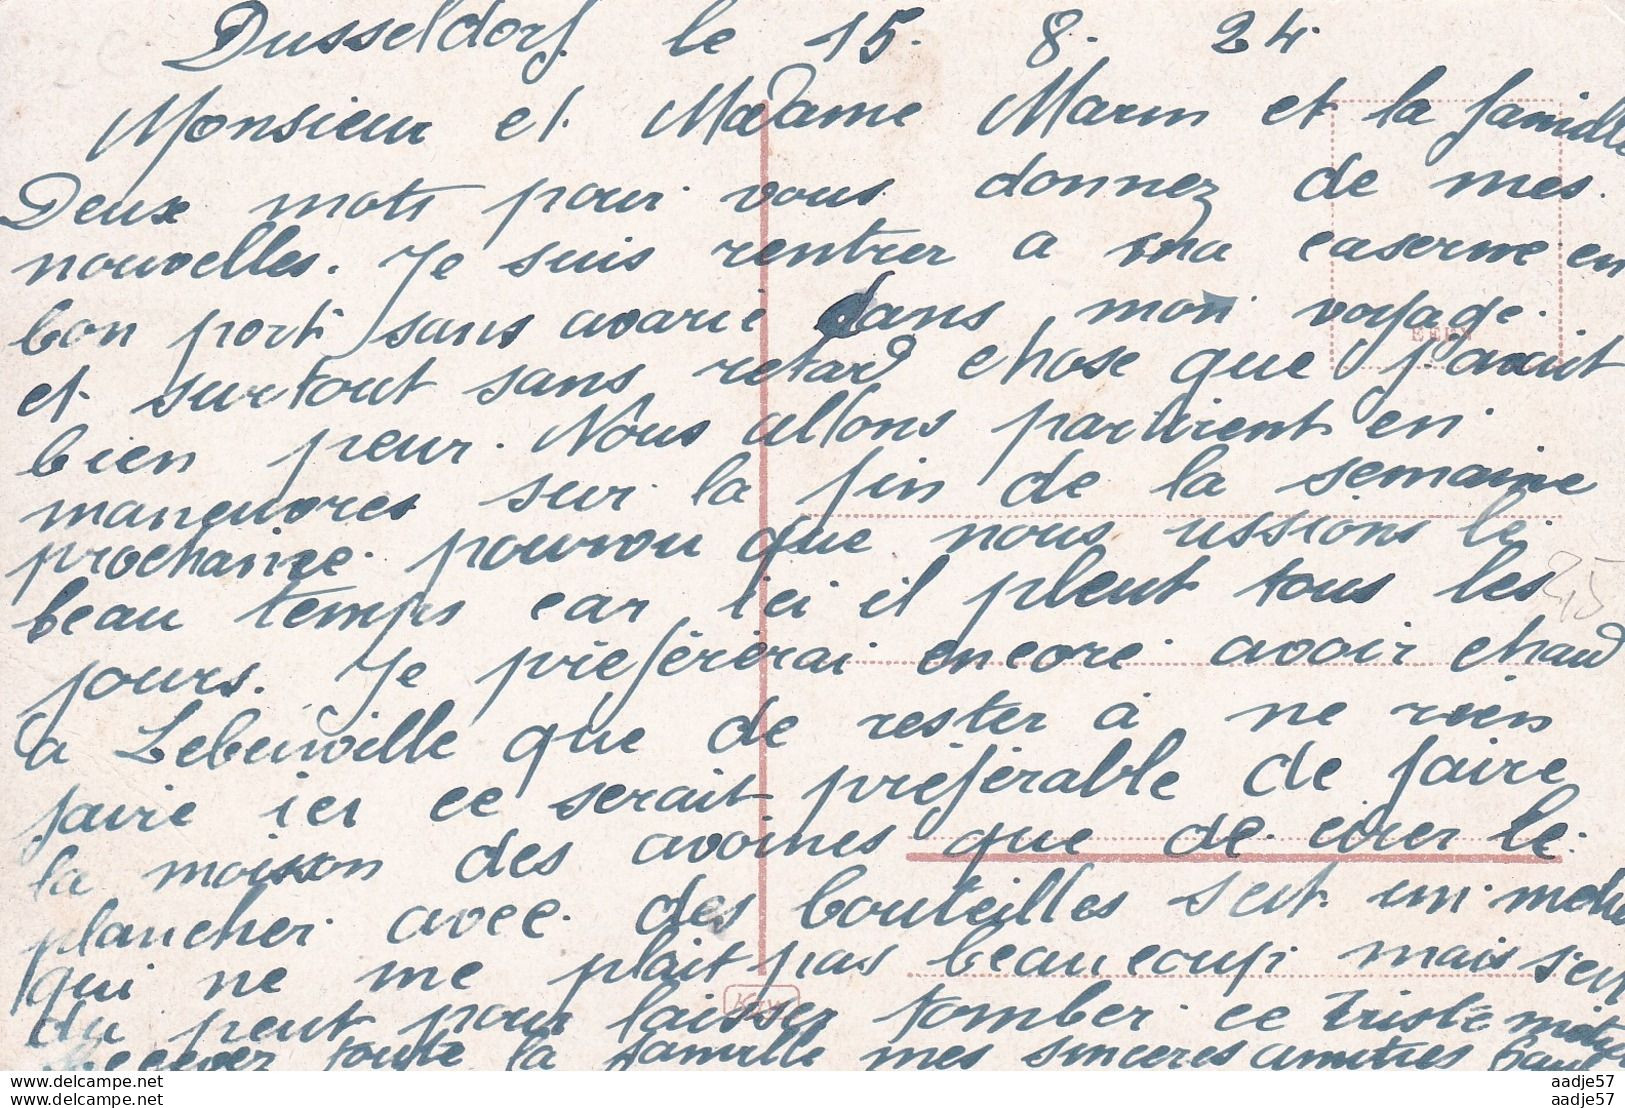 Dusseldorf le 15. 8. 24.
Monsieur et Madame Marin et la famille
Deux mots pour vous donnez de mes
nouvelles. Je suis rentrer a ma caserne en
bon port sans avarie dans mon voyage.
et surtout sans retard chose que j'avait
bien peur. Nous allons partirent en
maneuvores sur la fin de la semaine
prochaine pourvou que nous ussions le
beau temps car ici il pleut tous les
jours. Je préférerai encore avoir chaud
a que de rester à ne rien
faire ici ce serait préférable de faire
la moison des avoines que de cirer le
plancher avec des bouteilles sest un
qui ne me plait pas beaucoup mais s'est
du peut pour laisser tomber ce triste
Recevez toute la famille mes sinceres amities
KEEPN
25
aadje57
www.delcampe.net
aadje57
www.delcampe.net